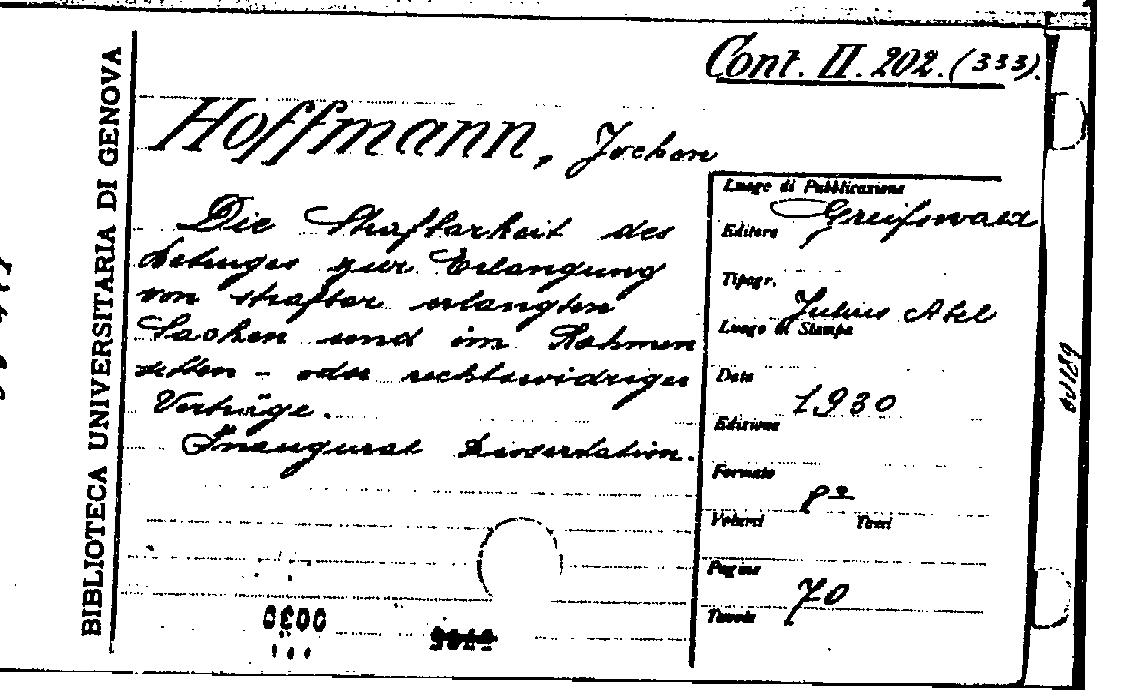 Cont. II. 202. (333).
BIBLIOTECA UNIVERSITARIA DI GENOVA
Hoffmann, Jochen
Die Strafbarkeit des
Betruges zur Erlangung
von strafbar erlangten
Sachen und im Rahmen
sitten - oder rechtswidriger
Verträge.
Inaugural Dissertation.
Luogo di Pubblicazione
Greifswald
Editore
Tipogr.
Julius Abel
Luogo di Stampa
Data
1930
Edizione
Formato
8º
Volumi Tomi
Pagine
70
Tavole
0030